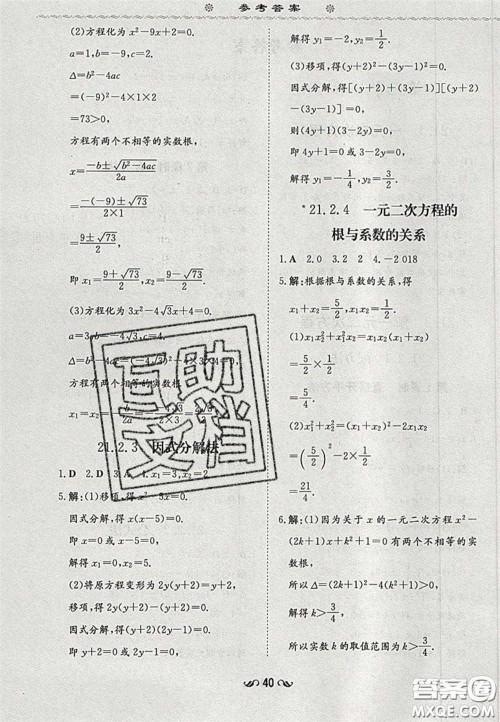 参考答案
(2)方程化为 x²-9x+2=0.
a=1,b=-9,c=2.
Δ=b²-4ac
=(-9)²-4×1×2
=73>0,
方程有两个不相等的实数根,
x=(-b±√(b²-4ac))/2a
=(-(-9)±√73)/(2×1)
=(9±√73)/2,
即 x₁=(9+√73)/2,x₂=(9-√73)/2.
(3)方程化为 3x²-4√3x+4=0.
方程有两个相等的实数根
x₁=x₂=
21.2.3 因式分解法
5.解:(1)移项,得 x²-5x=0.
因式分解,得 x(x-5)=0.
即 x=0 或 x-5=0.
解得 x₁=0,x₂=5.
(2)将原方程变形为 2y(y+2)=y+2.
移项,得 2y(y+2)-(y+2)=0.
因式分解,得(y+2)(2y-1)=0.
即 y+2=0 或 2y-1=0.
解得 y₁=-2,y₂=1/2.
(3)移项,得(y+2)²-(3y-1)²=0.
因式分解,得[(y+2)+(3y-1)][(y+2)
-(3y-1)]=0.
则(4y+1)(3-2y)=0.
即 4y+1=0 或 3-2y=0.
解得 y₁=-1/4,y₂=3/2.
*21.2.4 一元二次方程的
根与系数的关系
1.A 2.0 3.2 2 4.-2 018
5.解:根据根与系数的关系,得
x₁+x₂=5/2,x₁x₂=1/2.
(1)x₁x₂²+x₁²x₂=x₁x₂(x₁+x₂)
=5/2×1/2
=5/4.
=(5/2)²-2×1/2
=21/4.
6.解:(1)因为关于 x 的一元二次方程 x²-
(2k+1)x+k²+1=0 有两个不相等的实
数根,
所以 Δ=(2k+1)²-4(k²+1)>0,
解得 k>3/4.
所以实数 k 的取值范围为 k>3/4.
40
互助文档
答案圈
MXQE.COM